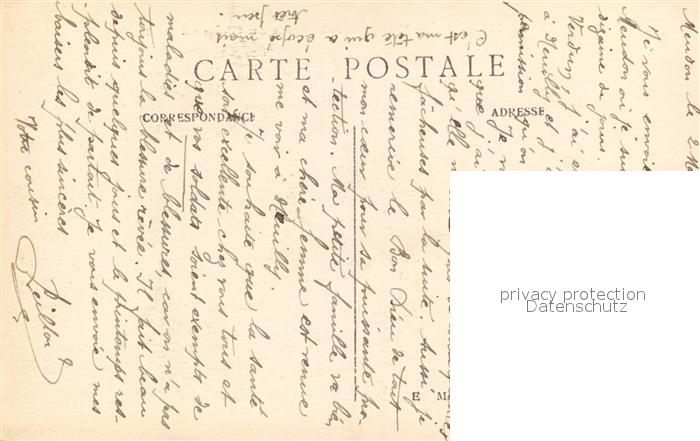 CARTE POSTALE
CORRESPONDANCE
ADRESSE
Meudon le
Je vous envoie
Meudon où je suis
dizaine de jours.
Verdun, j'ai
à Neuilly et j'
permission
que j'ai
qu'elle n
fâcheuses par la suite. Aussi je
remercie le Bon Dieu de tout
mon cœur pour sa puissante pro-
tection. Ma petite famille va bien
et ma chère femme est venue
me voir à Neuilly.
Je souhaite que la santé
soit excellente chez vous tous et
que vos soldats soient exempts de
maladies et de blessures, car on n'a pas
toujours la blessure rêvée. Il fait beau
depuis quelques jours et le printemps res-
plendit de partout. Je vous envoie mes
baisers les plus sincères
Votre cousin
C'est ma tête qui a écopé mais
très peu.
privacy protection
Datenschutz